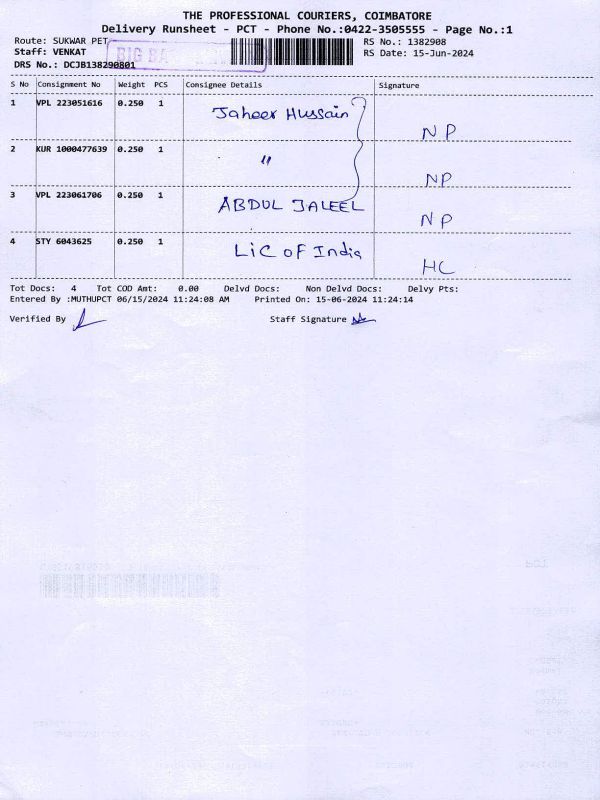 THE PROFESSIONAL COURIERS, COIMBATORE
Delivery Runsheet - PCT - Phone No.:0422-3505555 - Page No.:1
Route: SUKWAR PET
RS No.: 1382908
Staff: VENKAT
BIG BA
RS Date: 15-Jun-2024
DRS No.: DCJB138290801
S No Consignment No Weight PCS Consignee Details Signature
1 VPL 223051616 0.250 1 Jaheer Hussain NP
2 KUR 1000477639 0.250 1 " NP
3 VPL 223061706 0.250 1 ABDUL JALEEL NP
4 STY 6043625 0.250 1 LiC OF India HC
Tot Docs: 4 Tot COD Amt: 0.00 Delvd Docs: Non Delvd Docs: Delvy Pts:
Entered By :MUTHUPCT 06/15/2024 11:24:08 AM Printed On: 15-06-2024 11:24:14
Verified By Staff Signature